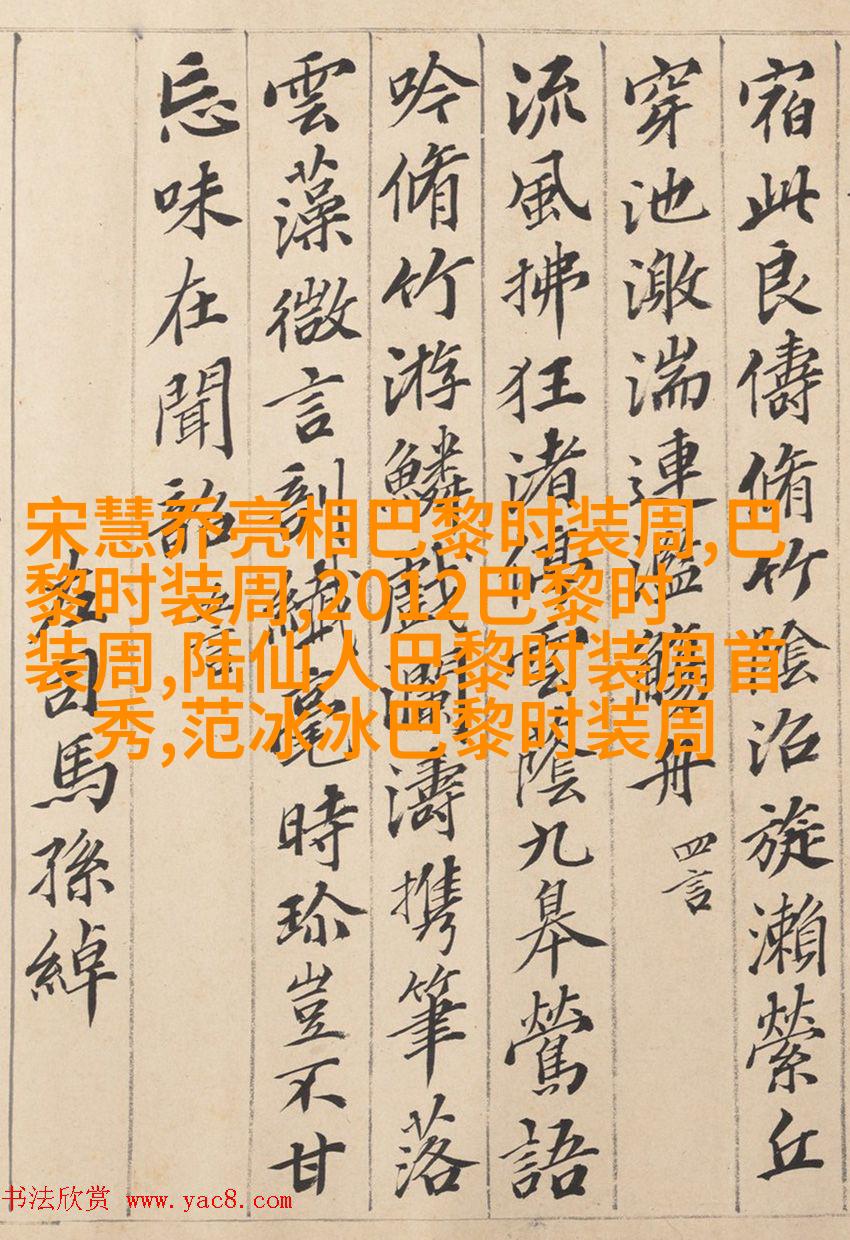 宿此良儔脩竹陰沼旋瀨縈丘
穿池激湍連濫觴舟 四言
流風拂狂渚停雲蔭九皋鶯語
吟脩竹游鱗戲瀾濤携筆落
雲藻微言剖纖毫時珍豈不甘
忘味在聞韶 五言
左司馬孫綽
宋慧乔亮相巴黎时装周,巴
黎时装周,2012巴黎时
装周,陆仙人巴黎时装周首
秀,范冰冰巴黎时装周
书法欣赏 www.yac8.com